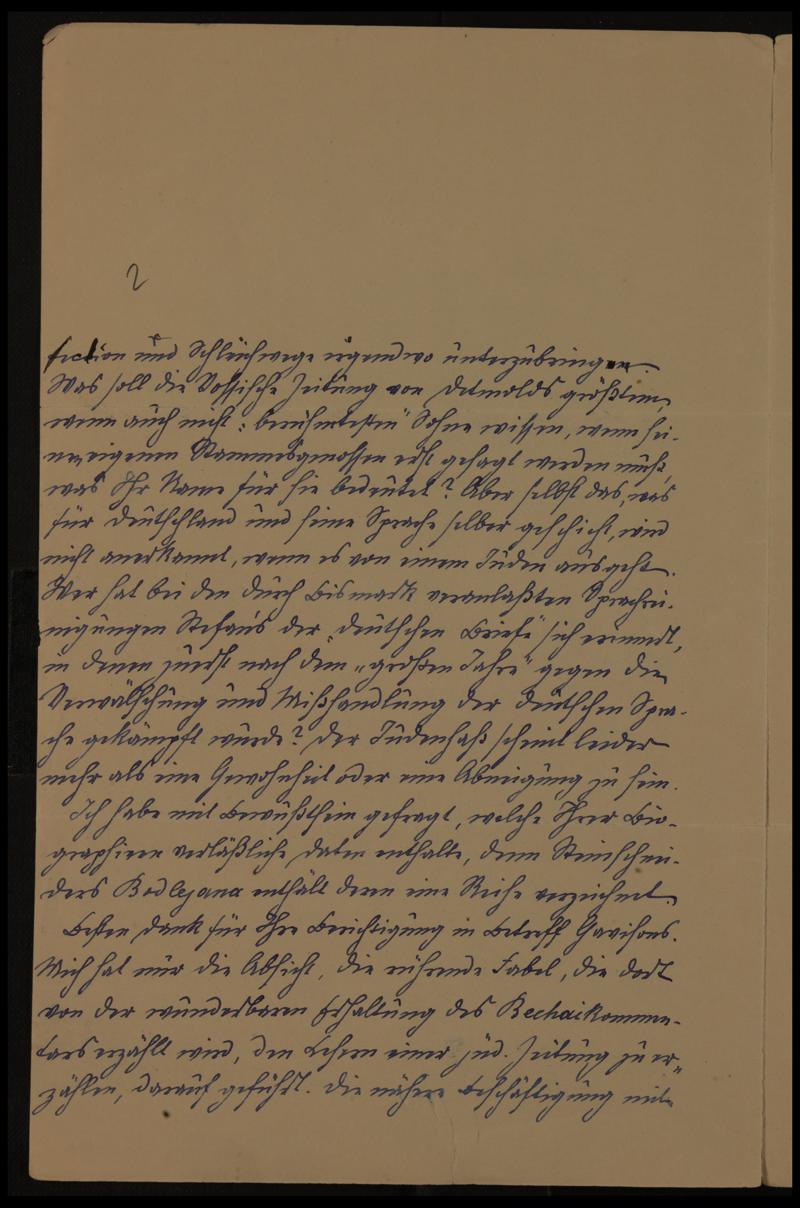 2
fection und Schleichwege irgendwo unterzubringen.
Was soll die Vossische Zeitung von Detmolds größtem,
wenn auch nicht: berühmtesten" Sohne wissen, wenn sei-
nen eigenen Stammesgenossen erst gesagt werden muß,
was Ihr Name für sie bedeutet? Aber selbst das, was
für Deutschland und seine Sprache selber geschieht, wird
nicht anerkannt, wenn es von einem Juden ausgeht.
Wer hat bei den durch Bismark veranlaßten Sprachrei-
nigungen Stefans der „deutschen Briefe" sich erinnert,
in denen zuerst nach dem „großen Jahre" gegen die
Verwälschung und Mißhandlung der deutschen Spra-
che gekämpft wurde? Der Judenhaß scheint leider
mehr als eine Gewohnheit oder eine Abneigung zu sein.
Ich habe mit Bewußtsein gefragt, welche Ihrer Bio-
graphieen verläßliche Daten enthalte, denn Steinschnei-
ders Bodlejana enthält deren eine Reihe verzeichnet.
Besten Dank für Ihre Berichtigung in Betreff Gavisons.
Mich hat nur die Absicht, die rührende Fabel, die dort
von der wunderbaren Erhaltung des Bechaikommen-
tars erzählt wird, den Lesern einer jüd. Zeitung zu er-
zählen, darauf geführt. Die nähere Beschäftigung mit